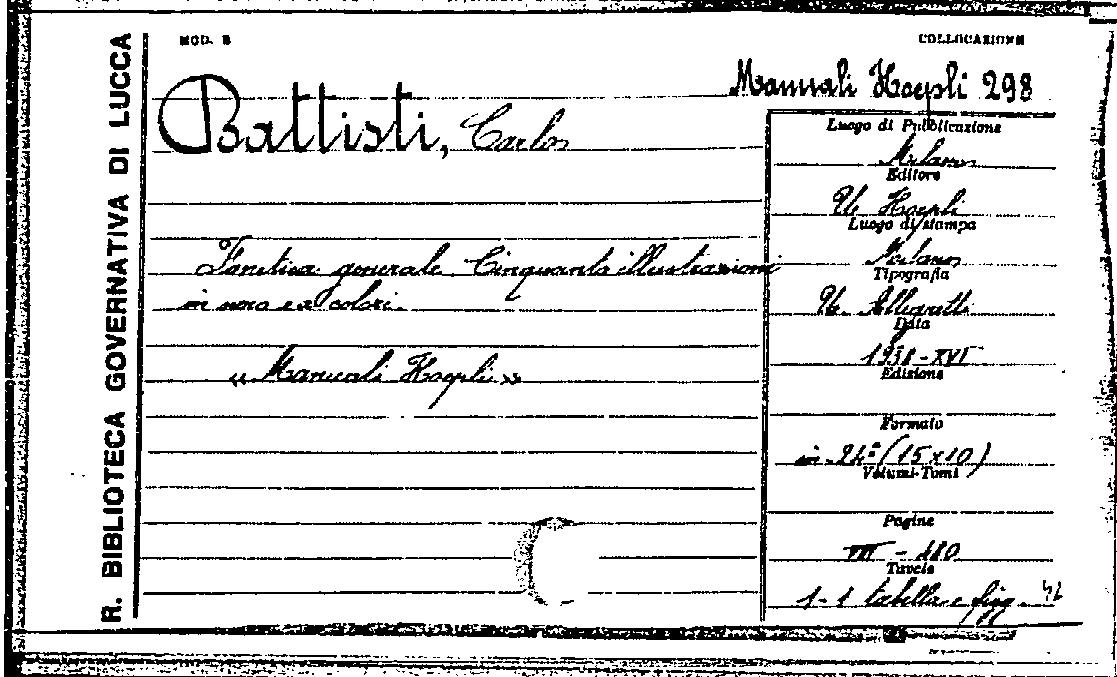 R. BIBLIOTECA GOVERNATIVA DI LUCCA
MOD. B
COLLOCAZIONE
Manuali Hoepli 298
Battisti, Carlo
Fonetica generale. Cinquanta illustrazioni
in nero e a colori.
« Manuali Hoepli »
Luogo di Pubblicazione
Milano
Editore
U. Hoepli
Luogo di stampa
Milano
Tipografia
U. Allegretti
Data
1938-XVI
Edizione
Formato
in-24º (15x10)
Volumi-Tomi
Pagine
VIII -
Tavole
1-1 tabella e figg.